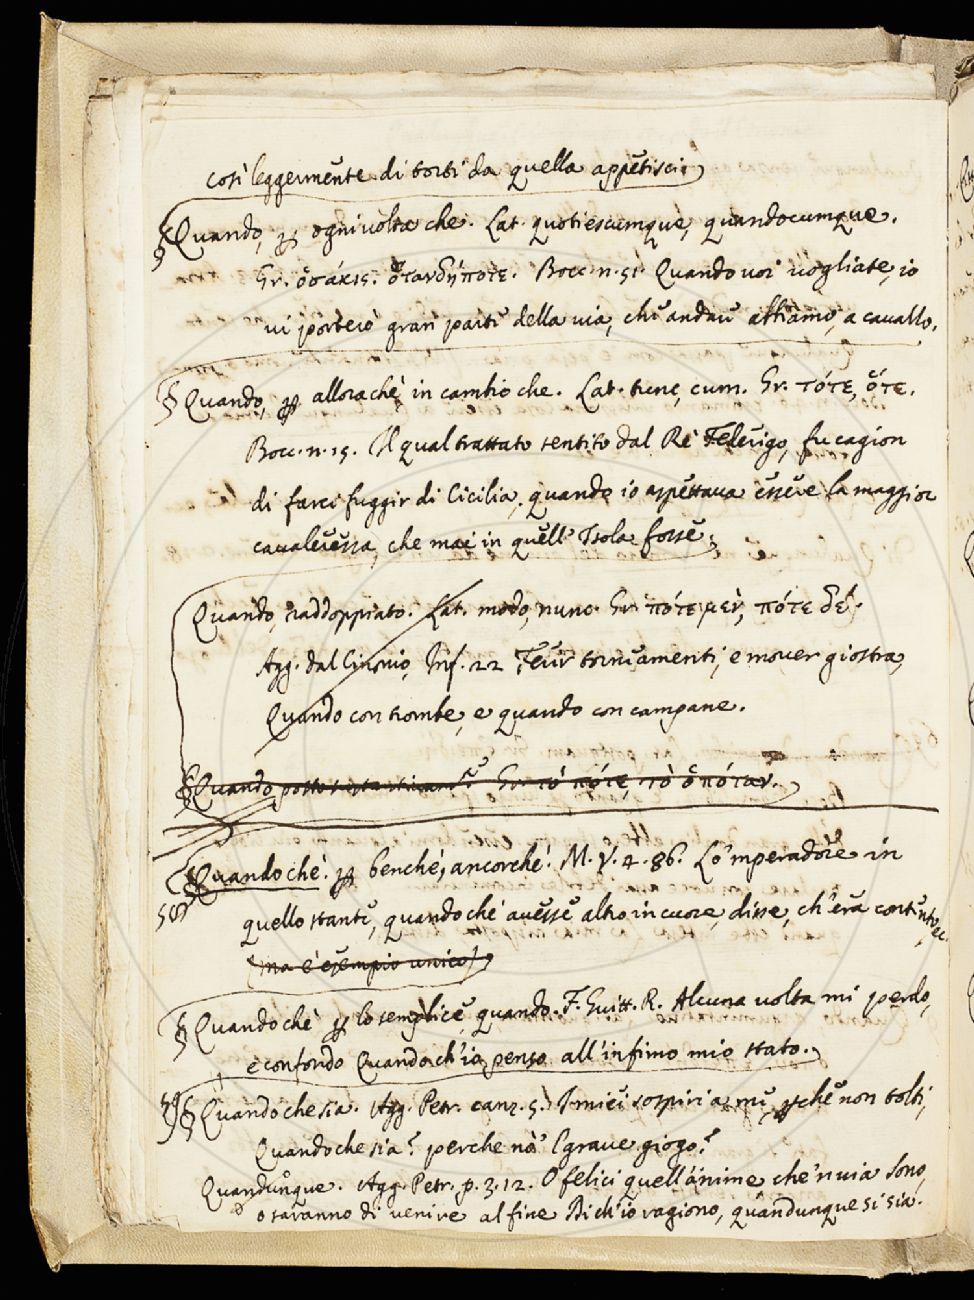 così leggermente di torti da quella appetisci
§ Quando, ꝑ ogni volta che. Lat. quotiescumque, quandocumque.
Gr. ὁσάκις. ὅτανδήποτε. Bocc. n. 51. Quando voi vogliate, io
vi porterò gran parte della via, che andar abbiamo, a cavallo.
§ Quando, ꝑ allorachè in cambio che. Lat. tunc, cum. Gr. τότε, ὅτε.
Bocc. n. 15. Il qual trattato sentito dal Rè Federigo, fu cagion
di farci fuggir di Cicilia, quando io aspettava essere la maggior
cavaleressa, che mai in quell' Isola fosse.
Quando, raddoppiato. Lat. modo, nunc. Gr. πότε μὲν, πότε δέ.
Agg. dal Cinonio, Inf. 22 Ferir torniamenti, e mover giostra,
Quando con trombe, e quando con campane.
§ Quando posto Gr. τὸ πότε, τὸ ὁπόταν.
§ Quando chè. ꝑ benchè, ancorchè. M. V. 4. 86. Lo 'mperadore in
quello stante, quando chè avesse altro in cuore, disse, ch'era contento ec.
(ma è esempio unico)
§ Quando chè ꝑ lo semplice quando. F. Guitt. R. Alcuna volta mi perdo,
e confondo Quando ch'io penso all'infimo mio stato.
§ Quando che sia. Agg. Petr. canz. 5. I miei sospiri a me ꝑchè non tolti,
Quando che sia? perche nò 'l grave giogo?
Quandunque. Agg. Petr. p. 3. 12. O felici quell'anime che 'n via sono,
o saranno di venire al fine Di ch'io ragiono, quandunque si sia.